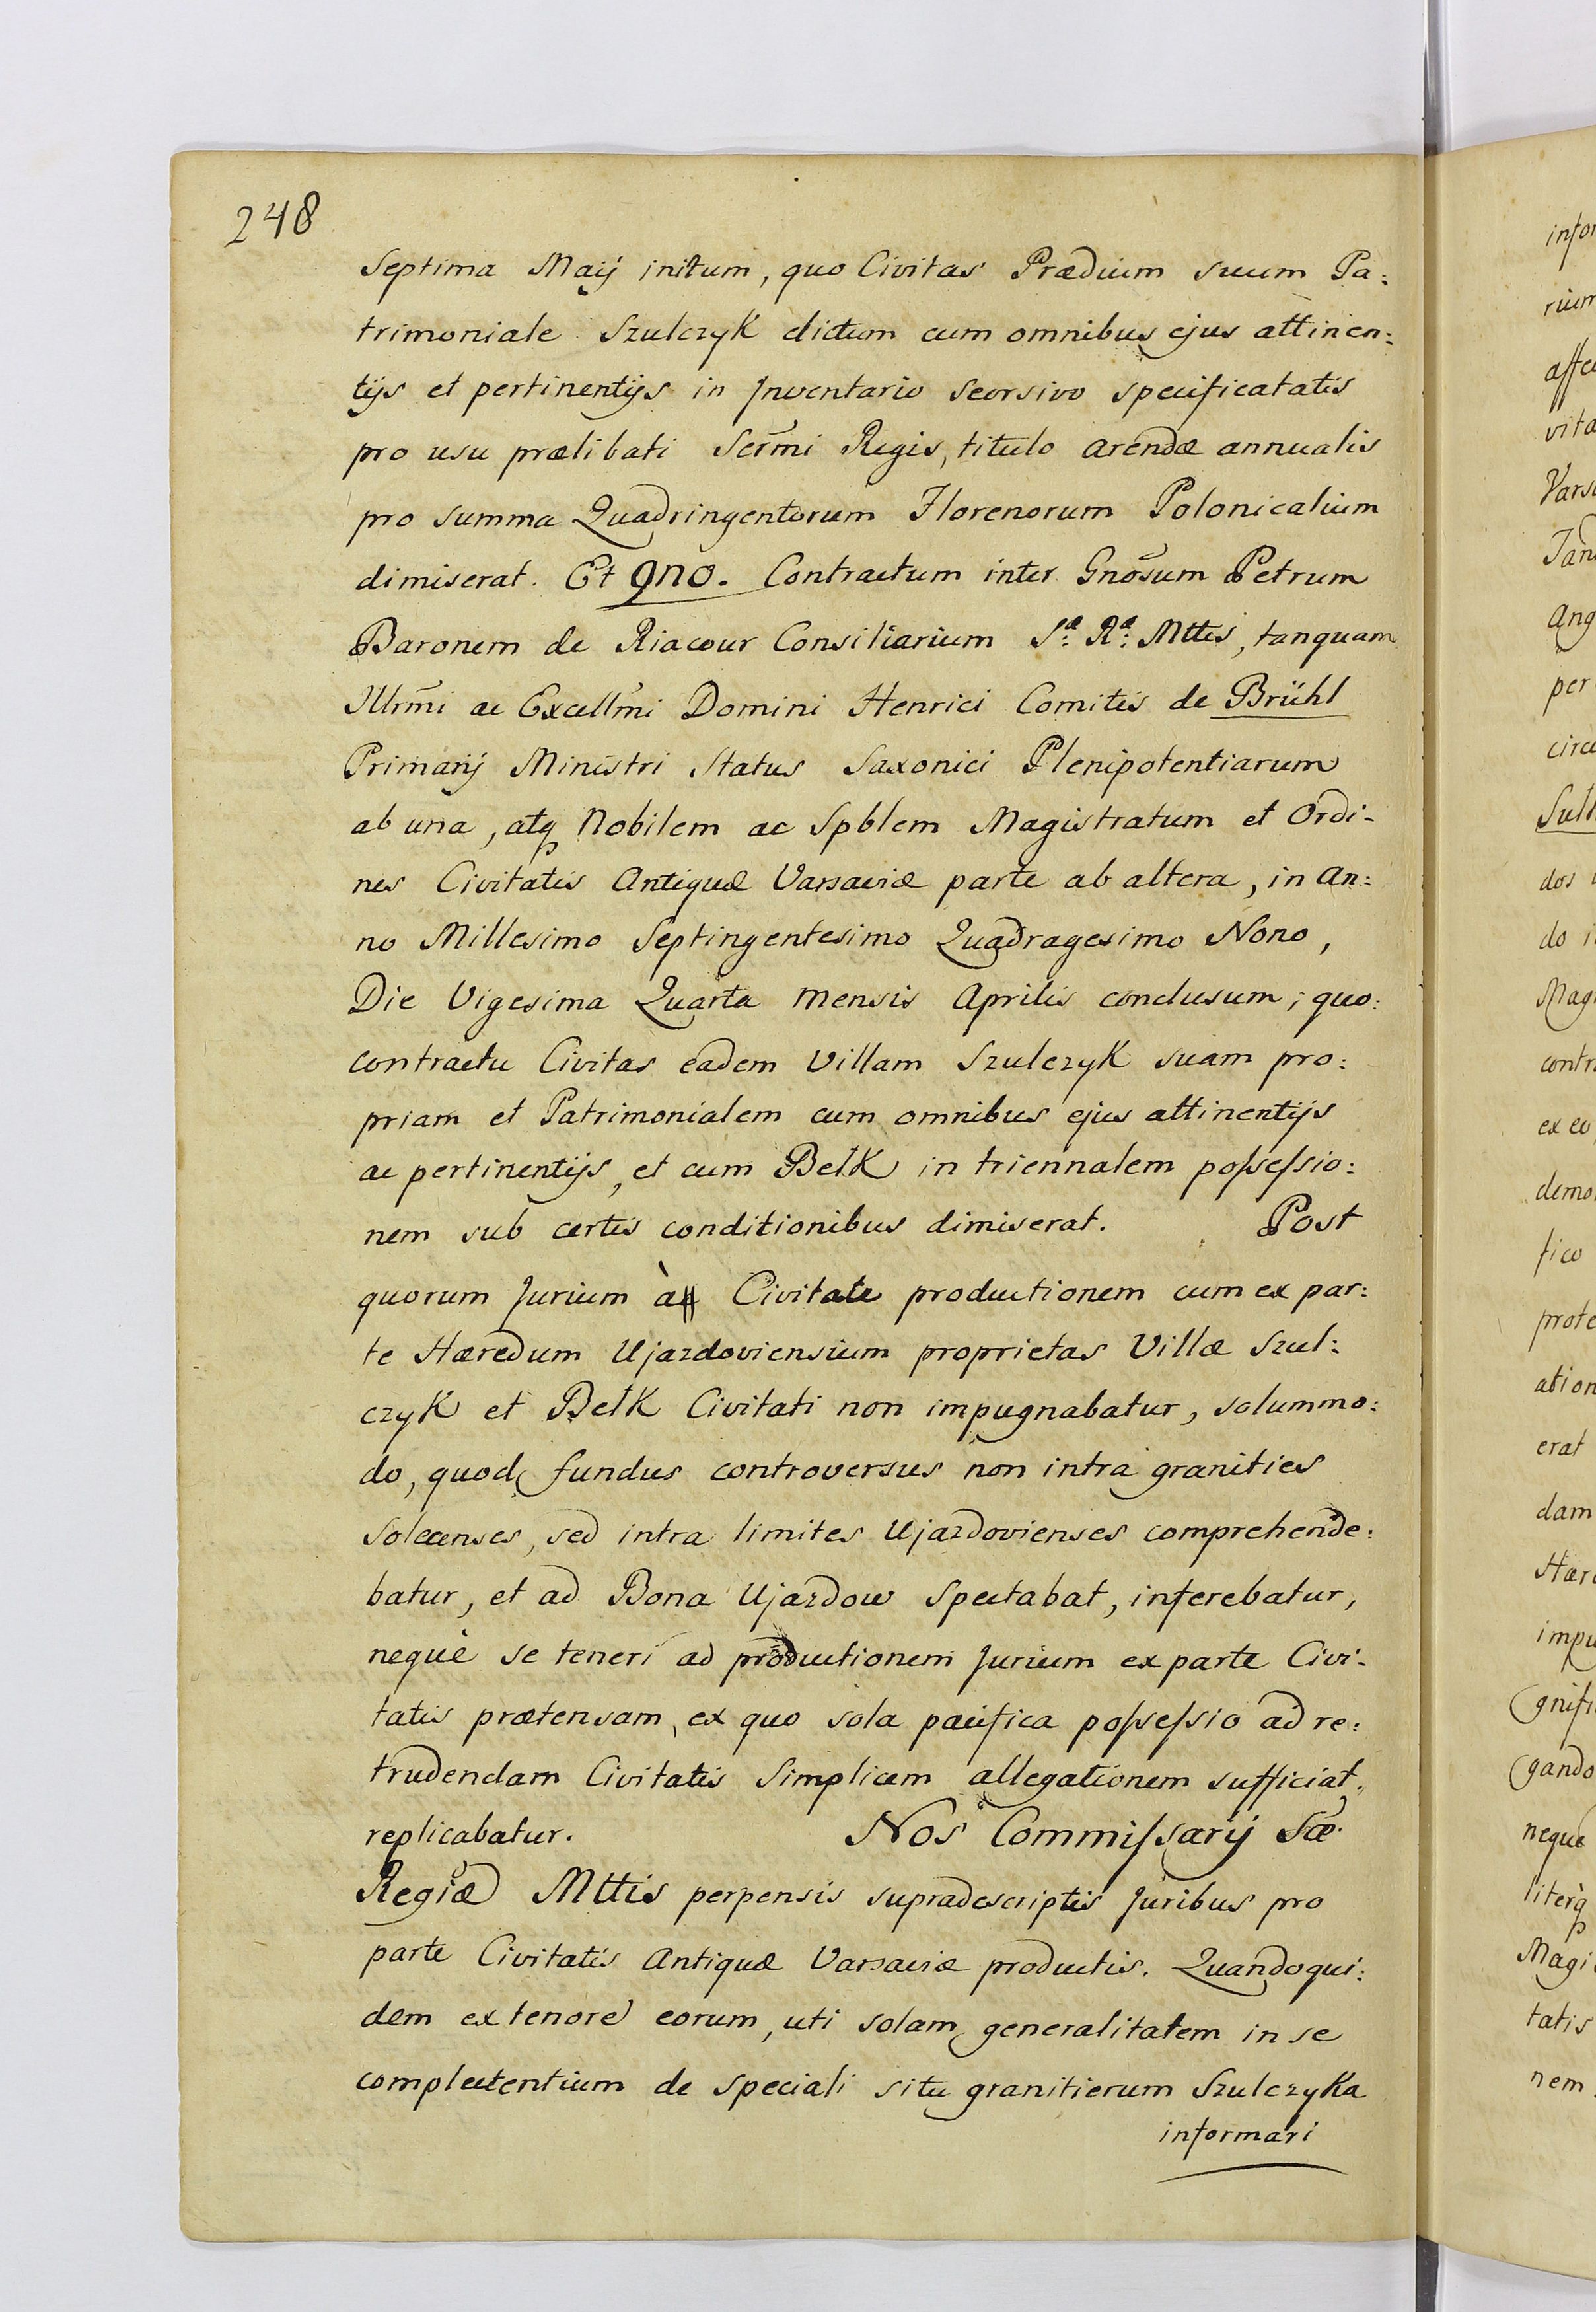 248
Septima Maij initum, quo Civitas Prædium suum Pa:
trimoniale Szulczyk dictum cum omnibus ejus attinen:
tijs et pertinentijs in Inventario seorsivo specificatatis
pro usu prælibati Serm̃i Regis, titulo arendæ annualis
pro summa Quadringentorum Florenorum Polonicalium
dimiserat. Et 9no. Contractum inter Gnõsum Petrum
Baronem de Riacour Consiliarium Sæ: Ræ: Mttis, tanquam
Illrm̃i ac Excellm̃i Domini Henrici Comitis de Brühl
Primarij Ministri Status Saxonici Plenipotentiarum
ab una, atq Nobilem ac Spblem Magistratum et Ordi-
nes Civitatis Antiquæ Varsaviæ parte ab altera, in An:
no Millesimo Septingentesimo Quadragesimo Nono,
Die Vigesima Quarta mensis Aprilis conclusum; quo:
contractu Civitas eadem Villam Szulczyk suam pro:
priam et Patrimonialem cum omnibus ejus attinentijs
ac pertinentijs, et cum Bełk in triennalem possessio:
nem sub certis conditionibus dimiserat. Post
quorum Jurium à Civitate productionem cum ex par:
te Hæredum Ujazdoviensium proprietas Villæ Szul:
czyk et Bełk Civitati non impugnabatur, solummo:
do, quod fundus controversus non intra granities
Solecenses, sed intra limites Ujazdovienses comprehende:
batur, et ad Bona Ujazdow spectabat, inferebatur,
nequè se teneri ad productionem Jurium ex parte Civi-
tatis prætensam, ex quo sola pacifica possessio ad re:
trudendam Civitatis Simplicem allegationem sufficiat,
replicabatur. Nos Commissarij Sæ.
Regiæ Mttis perpensis supradescriptis Juribus pro
parte Civitatis Antiquæ Varsaviæ productis. Quandoqui:
dem ex tenore eorum, uti solam generalitatem in se
complectentium de speciali situ granitierum Szulczyka
informari